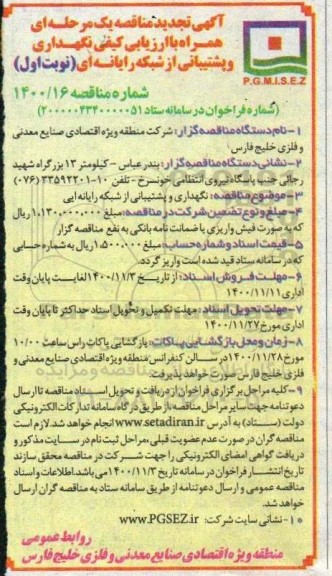 آگهی تجدید مناقصه یک مرحله ای
همراه با ارزیابی کیفی نگهداری
و پشتیبانی از شبکه رایانه ای (نوبت اول)
P.G.M.I.S.E.Z
شماره مناقصه ۱۴۰۰/۱۶
(شماره فراخوان در سامانه ستاد ۲۰۰۰۰۰۴۳۴۰۰۰۰۵۱)
۱- نام دستگاه مناقصه گزار: شرکت منطقه ویژه اقتصادی صنایع معدنی
و فلزی خلیج فارس
۲- نشانی دستگاه مناقصه گزار: بندرعباس - کیلومتر ۱۳ بزرگراه شهید
رجائی جنب پاسگاه نیروی انتظامی خونسرخ - تلفن ۱۰-۳۳۵۹۲۲۰۱ (۰۷۶)
۳- موضوع مناقصه: نگهداری و پشتیبانی از شبکه رایانه ایی
۴- مبلغ و نوع تضمین شرکت در مناقصه: مبلغ ۱.۱۳۰.۰۰۰.۰۰۰ ریال
که به صورت فیش واریزی یا ضمانت نامه بانکی به نفع مناقصه گزار
۵- قیمت اسناد و شماره حساب: مبلغ ۱.۵۰۰.۰۰۰ ریال به شماره حسابی
که در سامانه ستاد قید شده است واریز گردد.
۶- مهلت فروش اسناد: از تاریخ ۱۴۰۰/۱۱/۳ لغایت پایان وقت
اداری ۱۴۰۰/۱۱/۱۱
۷- مهلت تحویل اسناد: مهلت تکمیل و تحویل اسناد حداکثر تا پایان وقت
اداری مورخ ۱۴۰۰/۱۱/۲۷
۸- زمان و محل بازگشایی پاکات: بازگشایی پاکات راس ساعت ۱۰/۰۰
مورخ ۱۴۰۰/۱۱/۲۸ در سالن کنفرانس منطقه ویژه اقتصادی صنایع معدنی و
فلزی خلیج فارس صورت خواهد پذیرفت.
۹- کلیه مراحل برگزاری فراخوان از دریافت و تحویل اسناد مناقصه تا ارسال
دعوتنامه جهت سایر مراحل مناقصه، از طریق درگاه سامانه تدارکات الکترونیکی
دولت (ستاد) به آدرس www.setadiran.ir انجام خواهد شد. لازم است
مناقصه گران در صورت عدم عضویت قبلی، مراحل ثبت نام در سایت مذکور و
دریافت گواهی امضای الکترونیکی را جهت شرکت در مناقصه محقق سازند
تاریخ انتشار فراخوان در سامانه تاریخ ۱۴۰۰/۱۱/۳ می باشد. اطلاعات و اسناد
مناقصه عمومی و ارسال دعوتنامه از طریق سامانه ستاد به مناقصه گران ارسال
خواهد شد.
۱۰- نشانی سایت شرکت: www.PGSEZ.ir
روابط عمومی
منطقه ویژه اقتصادی صنایع معدنی و فلزی خلیج فارس